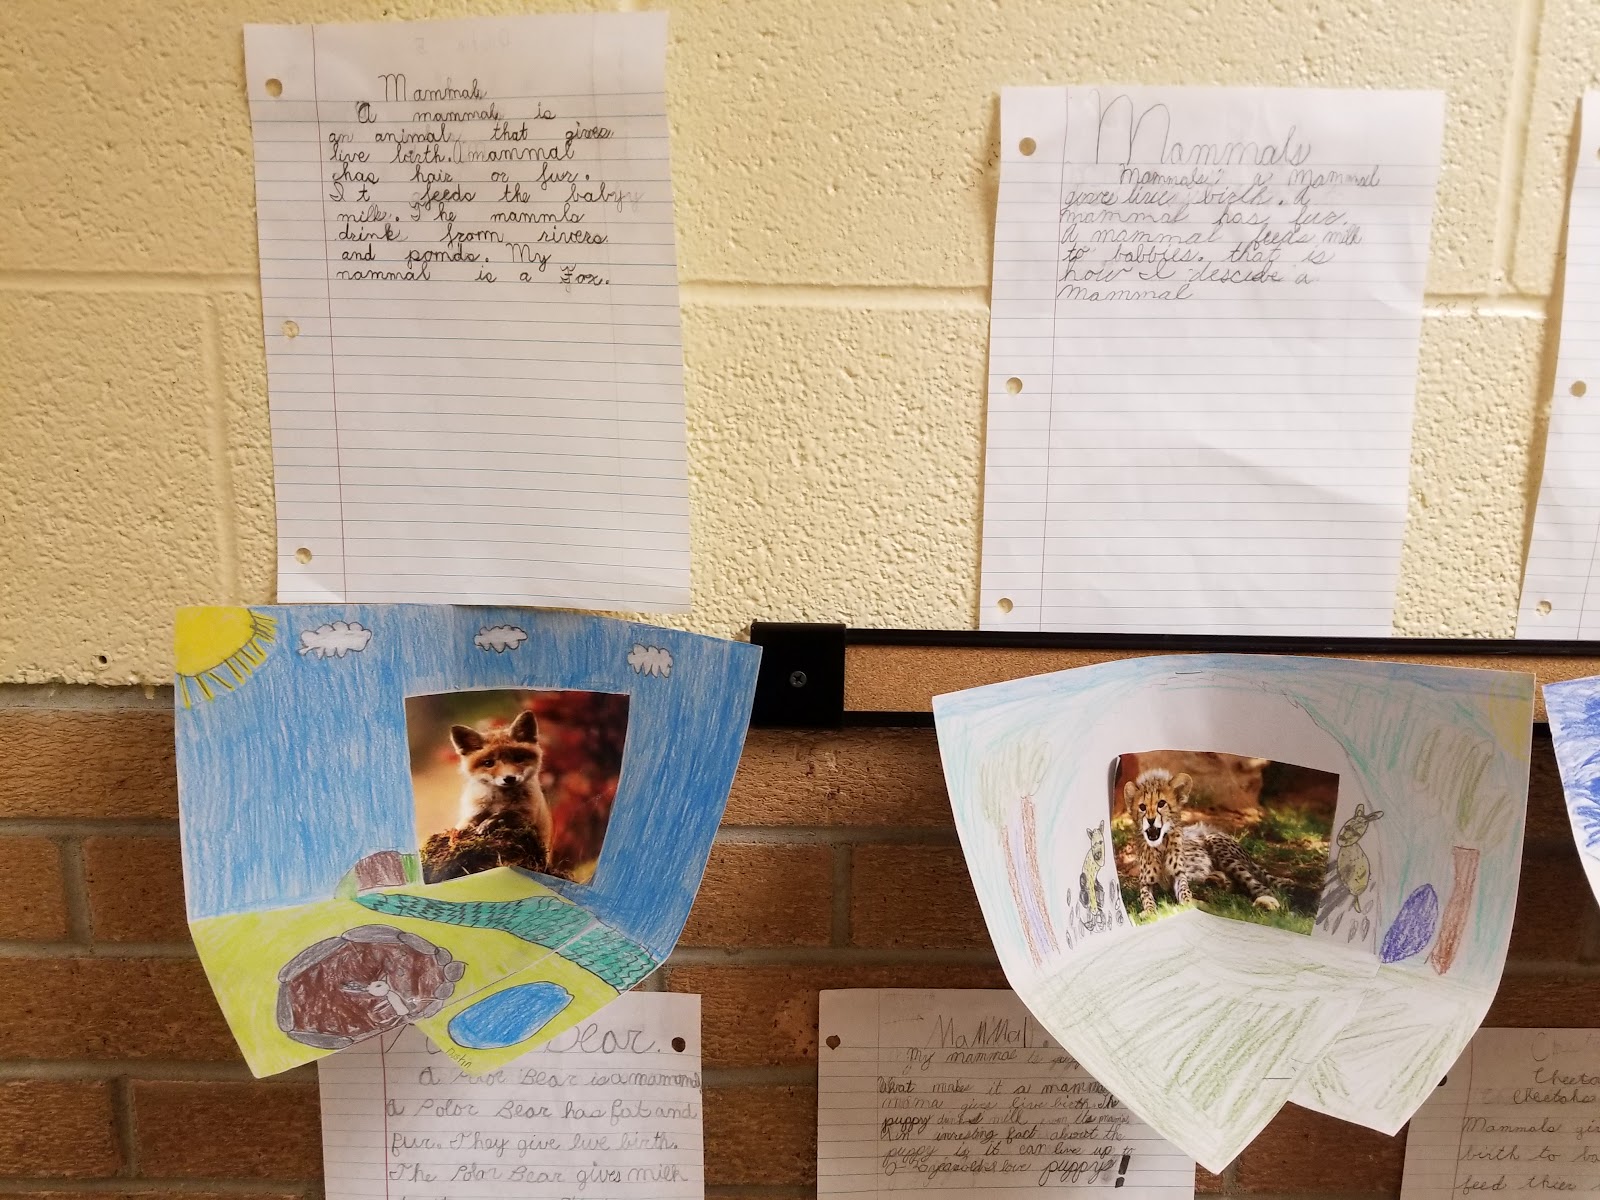 Mammals
A mammal is
an animal that gives
live birth. A mammal
has hair or fur.
I t feeds the baby
milk. The mammls
drink from rivers
and ponds. My
nammal is a Fox.
Mammals
Mammals? a Mammal
gives live birth. a
mammal has fur.
A mammal feeds milk
to babbies. that is
how I descube a
mammal
Bear.
A Bear is a mammal
a Polor Bear has fat and
fur. They give live birth.
The Polar Bear gives milk
MaMMal
My mammal is
What makes it a mamma
mama give live birth. The
puppy drinks milk its
An intresting fact about the
puppy is it can live up to
love puppys!
Cheeta
Cheetahs
Mammals gi
birth to ba
feed thier